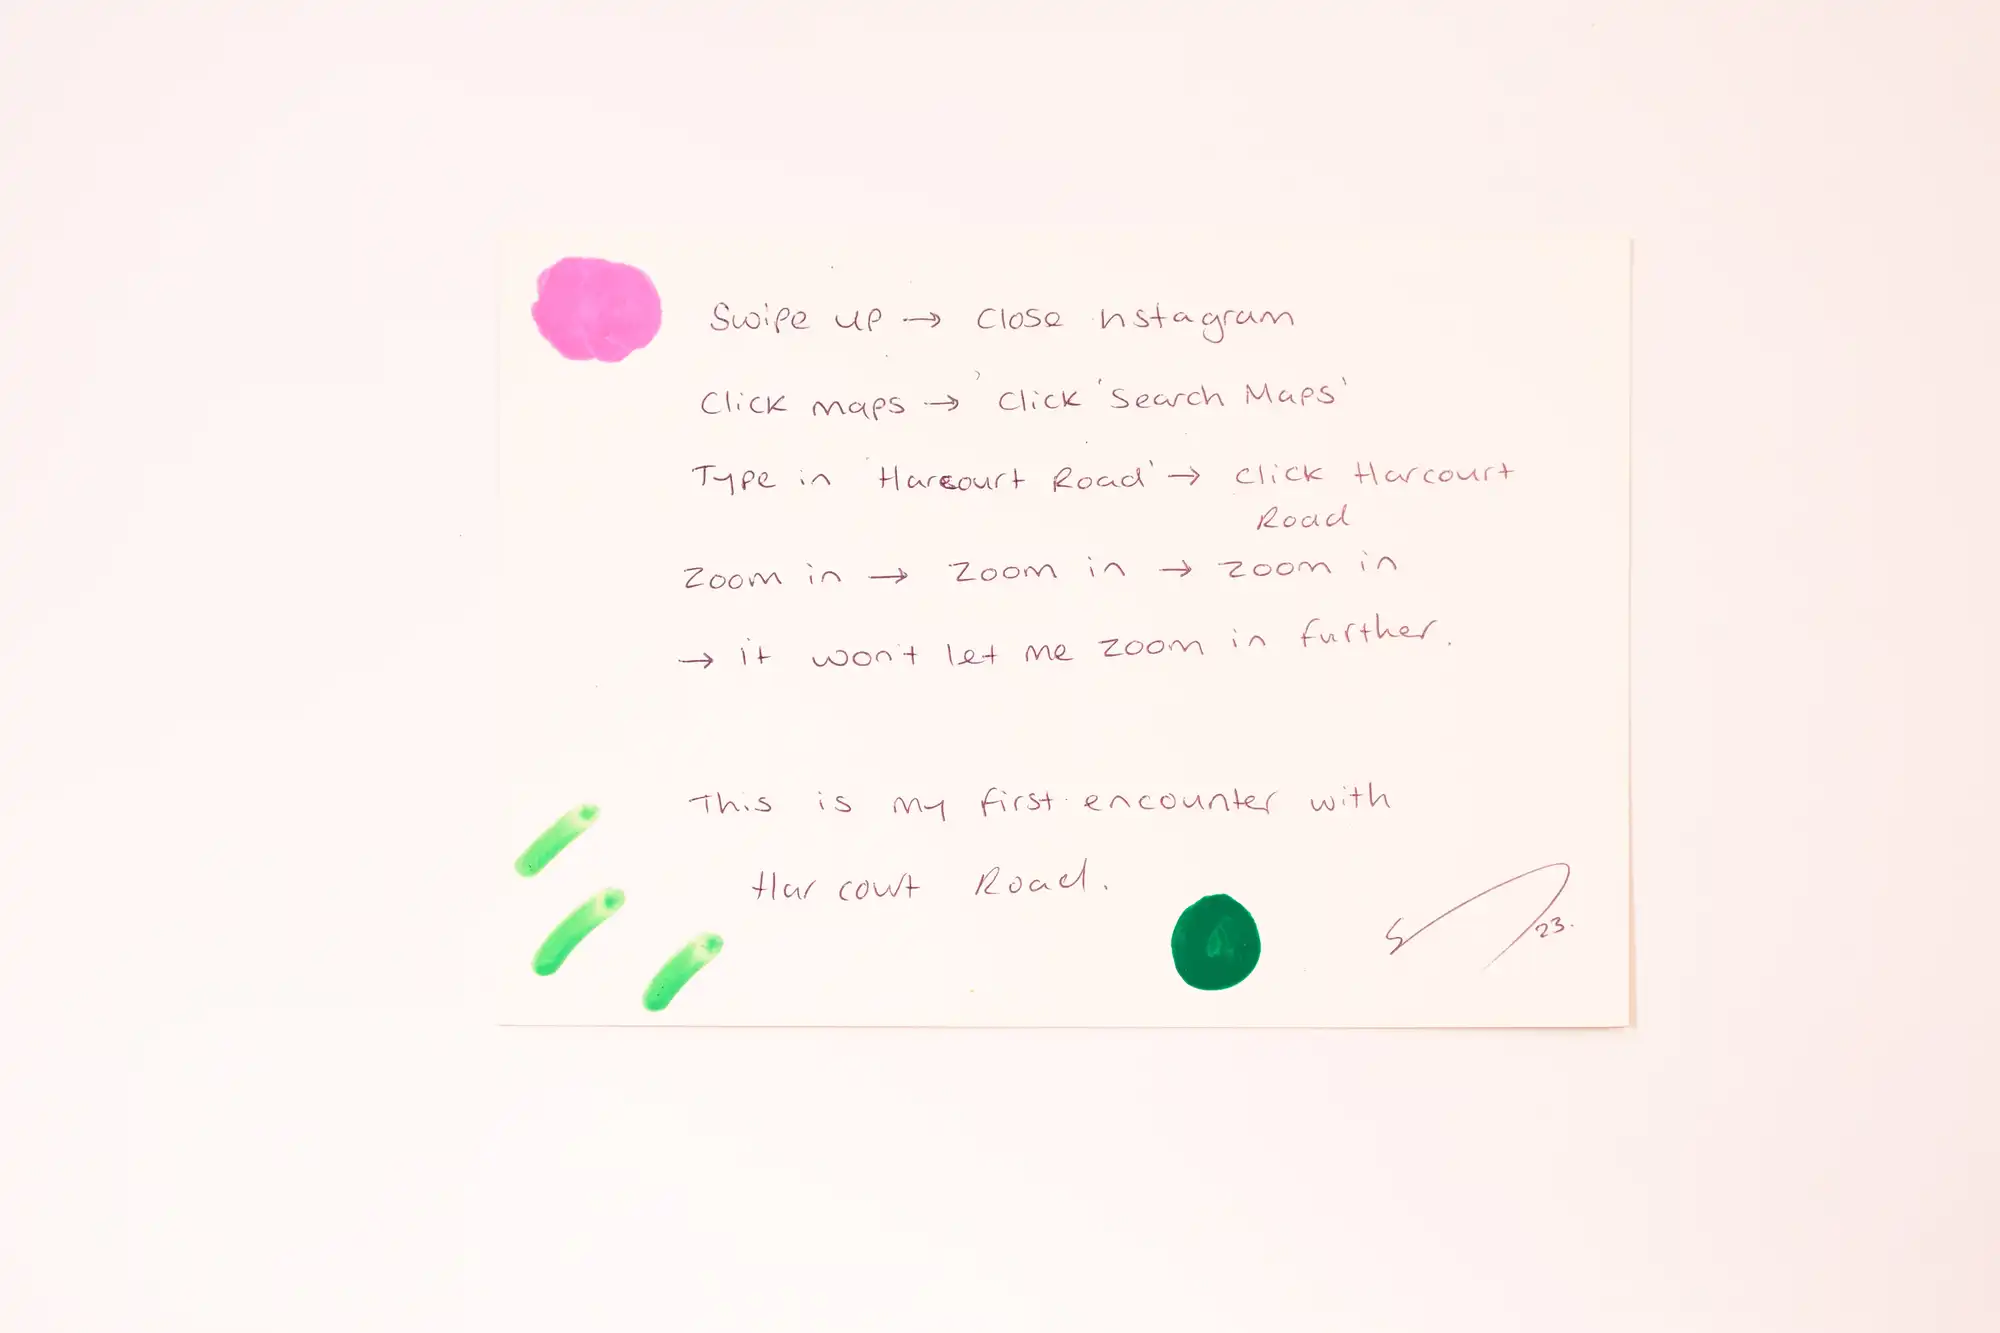 Swipe up → close nstagram
Click maps → click 'Search Maps'
Type in 'Harcourt Road' → click Harcourt
Road
Zoom in → zoom in → zoom in
→ it won't let me zoom in further.
This is my first encounter with
Harcourt Road.
23.